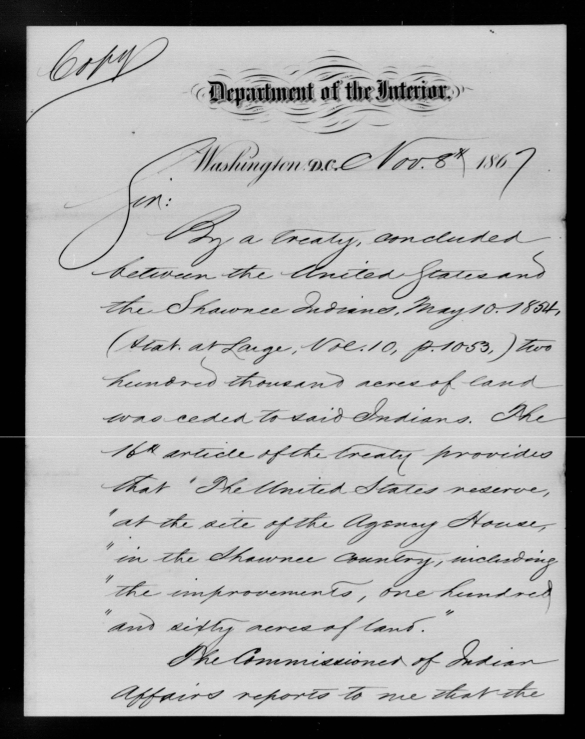 Copy
Department of the Interior.
Washington D.C. Nov. 8th 1867
Sir:
By a treaty, concluded
between the United States and
the Shawnee Indians, May 10. 1854,
(Stat. at Large, Vol. 10, p. 1053,) two
hundred thousand acres of land
was ceded to said Indians. The
16th article of the treaty provides
that "The United States reserve,
"at the site of the Agency House,
"in the Shawnee country, including
"the improvements, one hundred
"and sixty acres of land."
The Commissioner of Indian
Affairs reports to me that the